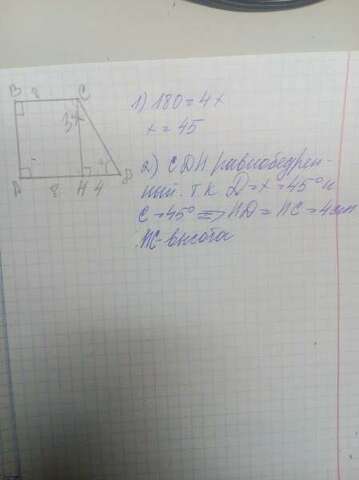 B 8 C
3x
A 8 H 4 D
1) 180 = 4x
x = 45
2) CDH равнобедрен-
ный т.к D = x = 45° и
C = 45° => HD = HC = 4см
HC - высота